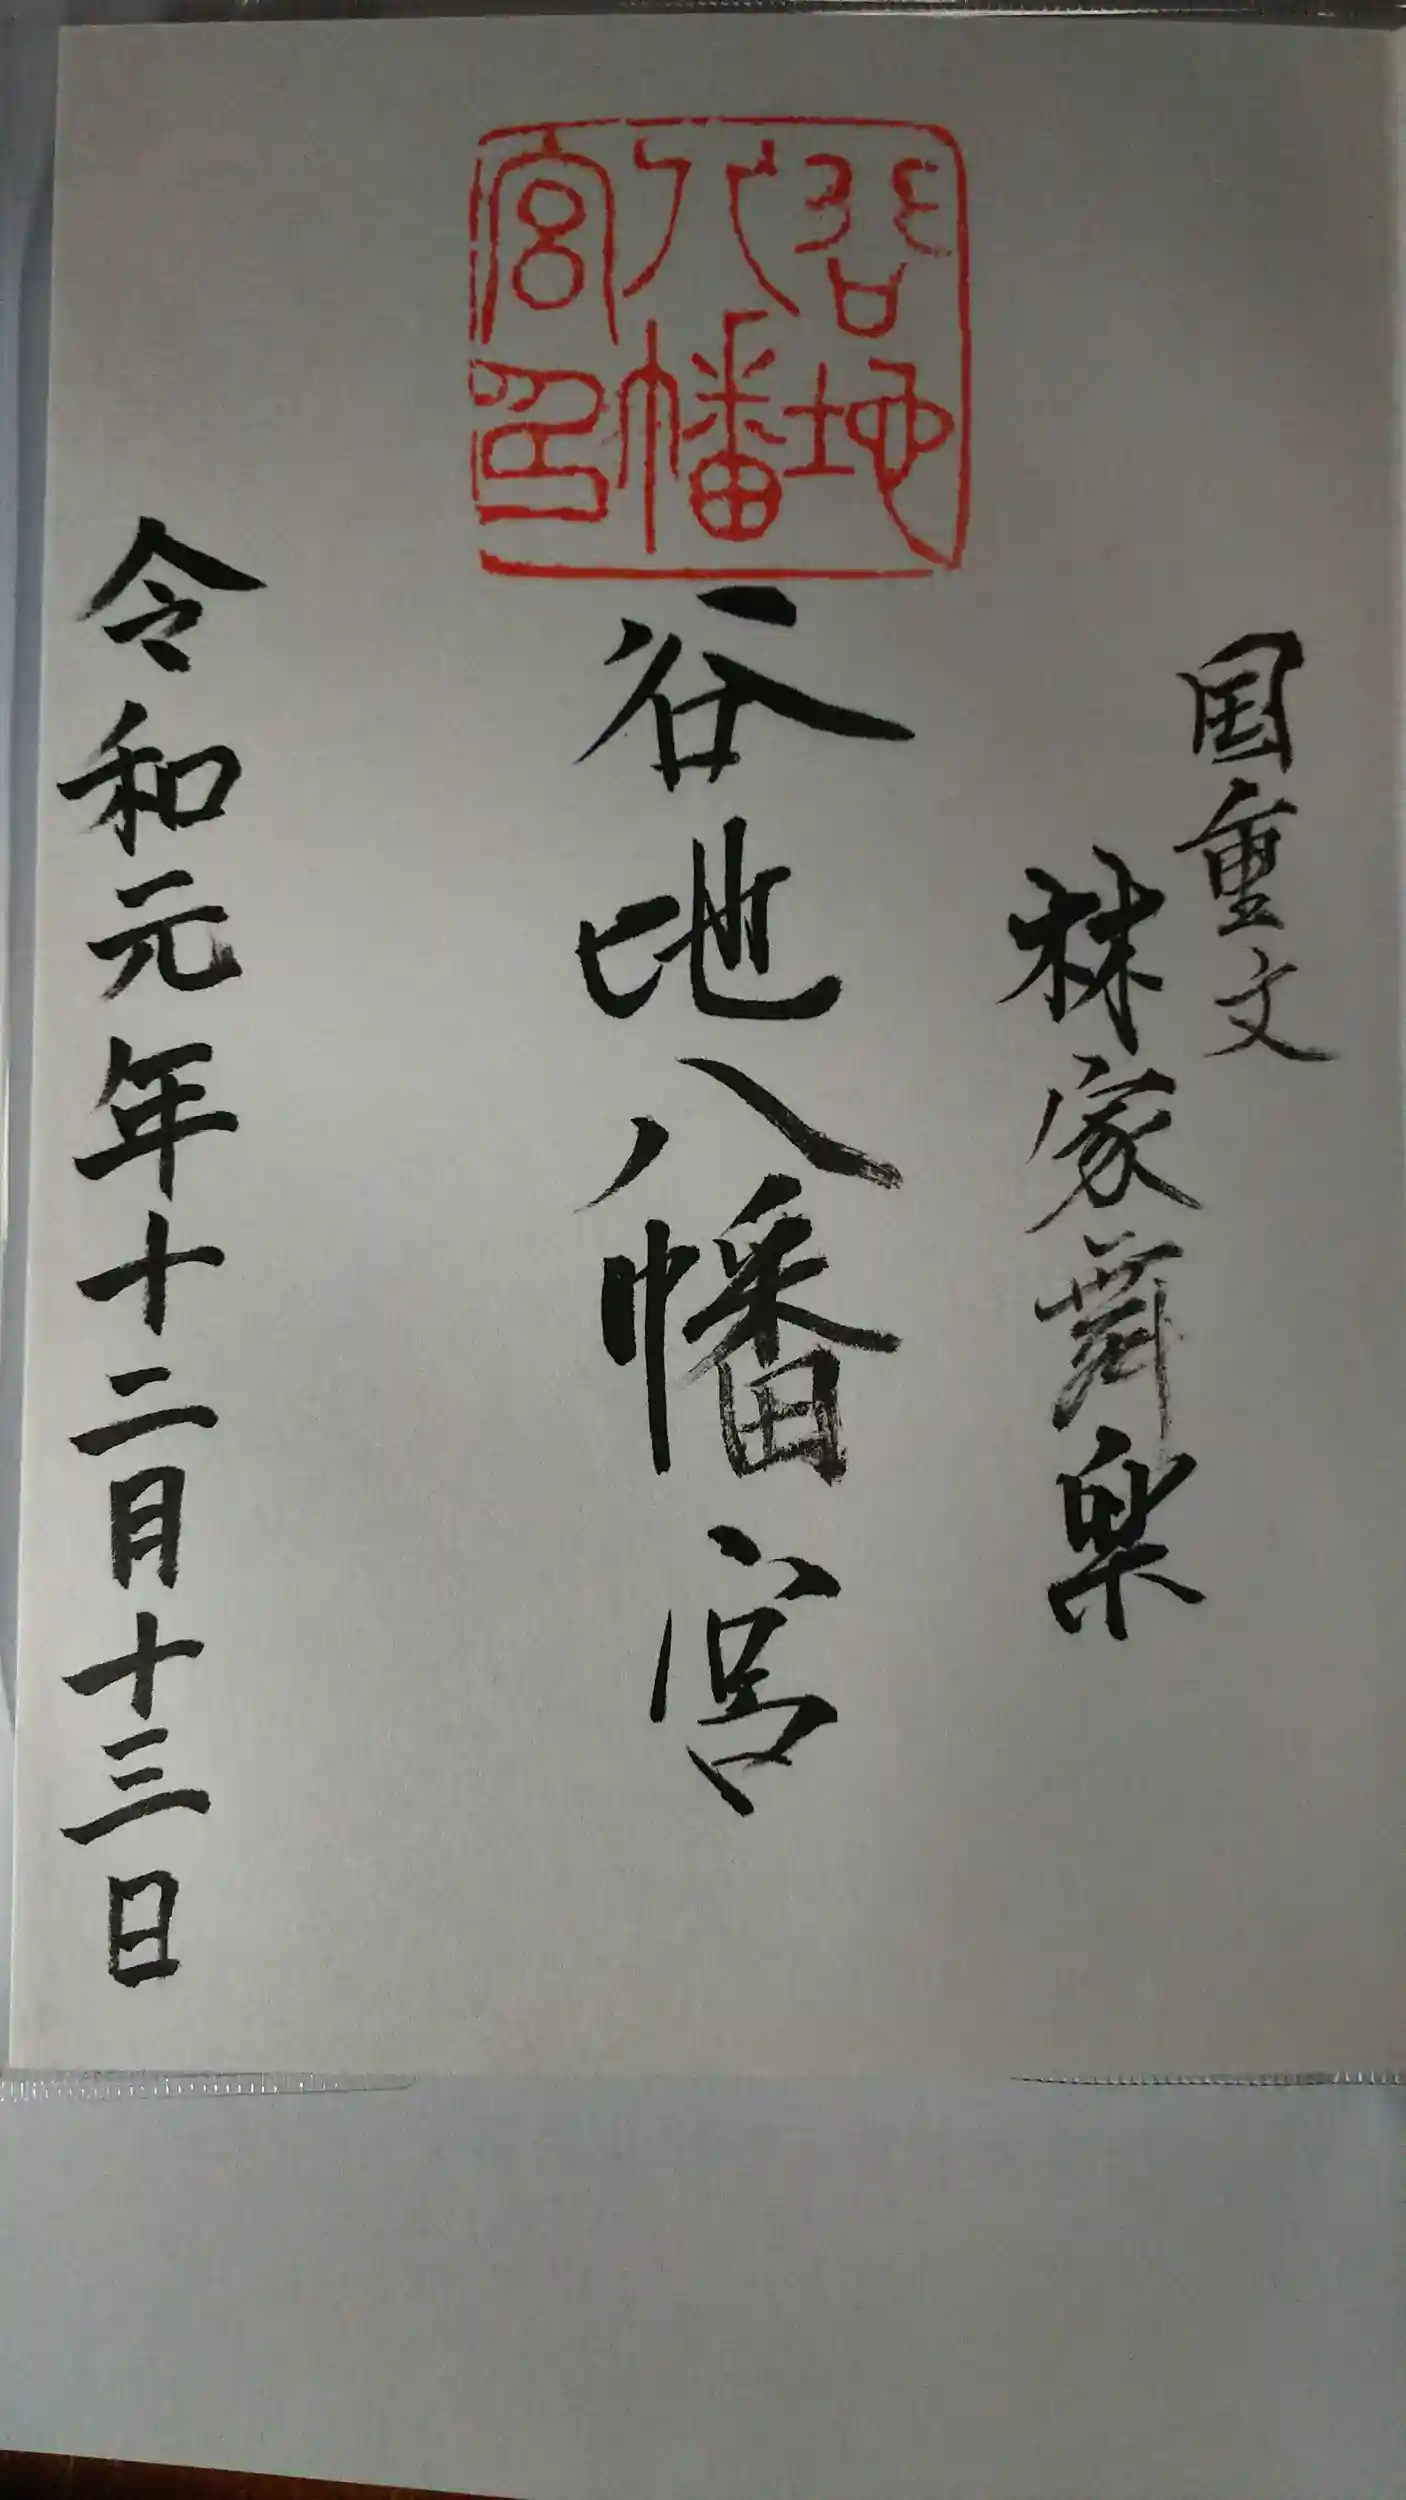 国重文
林家舞楽
谷地
八幡
宮印
谷地八幡宮
令和元年十二月十三日